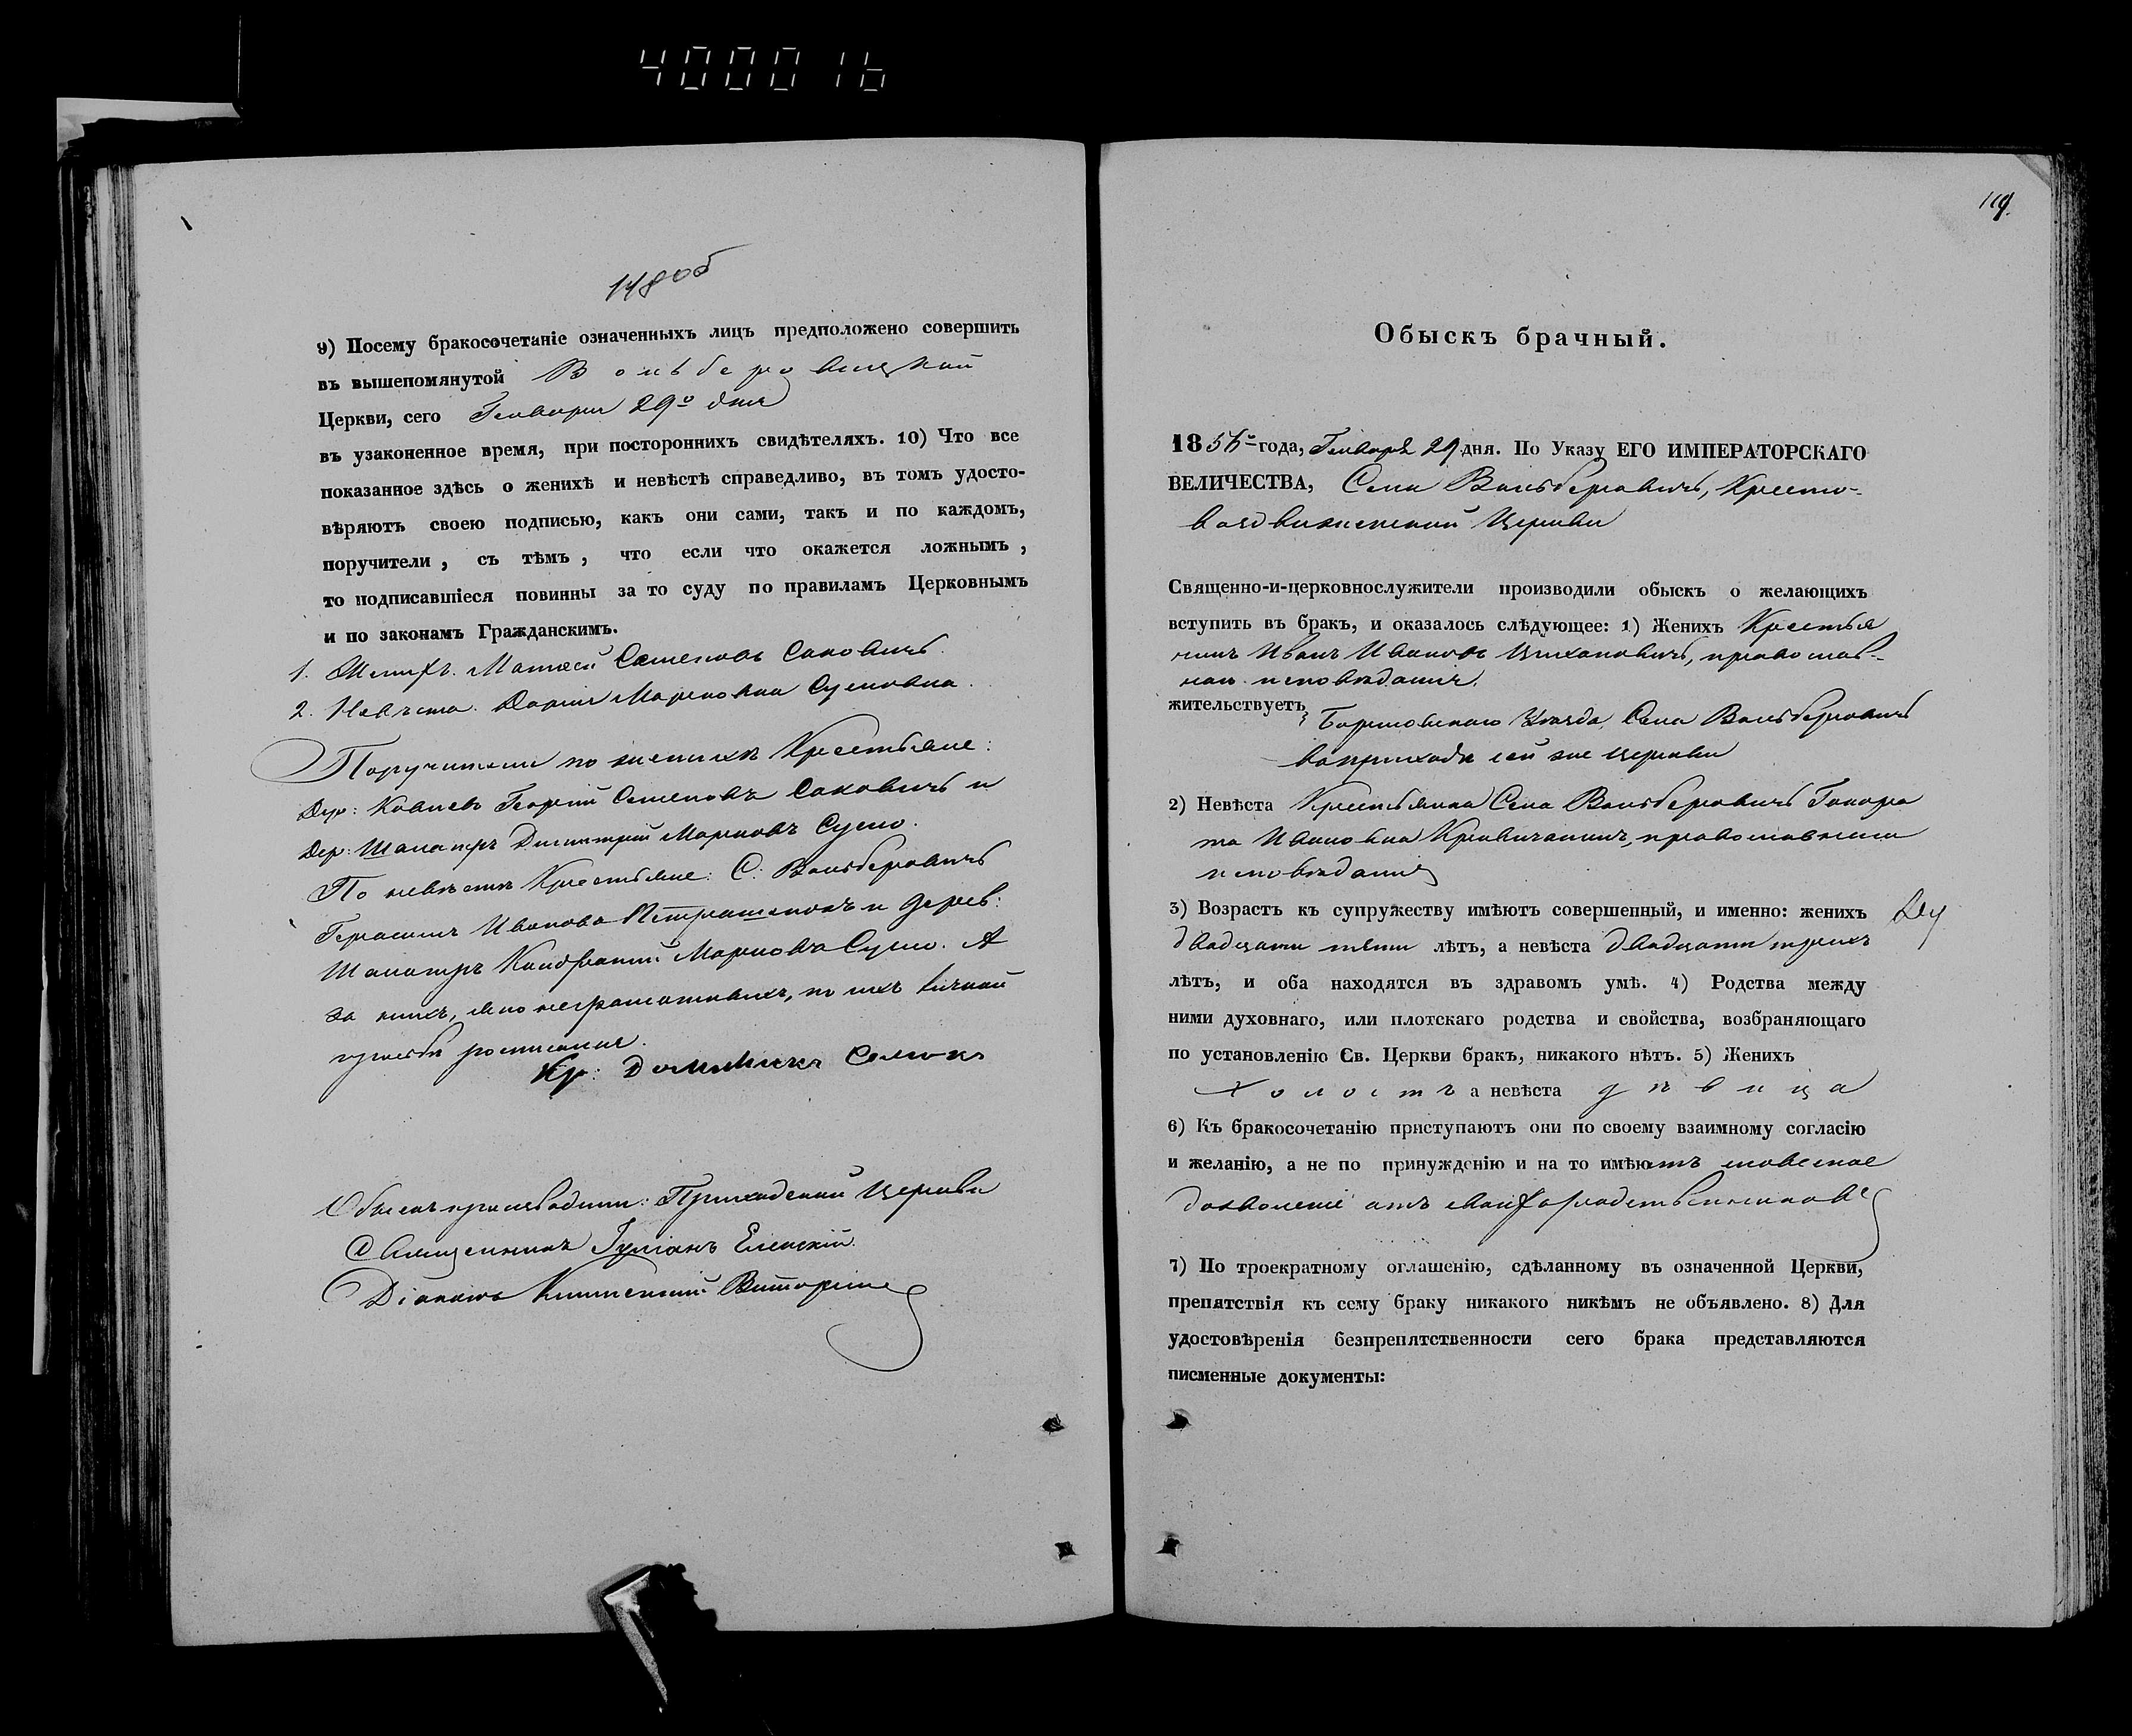 4000016
148 об
9) Посему бракосочетаніе означенныхъ лицъ предположено совершить
въ вышепомянутой Вольберовицкой
Церкви, сего Генваря 29º дня
въ узаконенное время, при постороннихъ свидѣтеляхъ. 10) Что все
показанное здѣсь о женихѣ и невѣстѣ справедливо, въ томъ удосто-
вѣряютъ своею подписью, какъ они сами, такъ и по каждомъ,
поручители, съ тѣмъ, что если что окажется ложнымъ,
то подписавшіеся повинны за то суду по правиламъ Церковнымъ
и по законамъ Гражданскимъ.
1. Женихъ. Матвей Семеновъ Саковичъ.
2. Невѣста. Дарія Маркована Сушкована.
Поручители по женихѣ Крестьяне:
Дер: Георгій Семеновъ Саковичъ и
Дер: Шалатръ Димитрій Марковъ
По невѣстѣ Крестьяне: С: Вольберовичъ
Герасимъ Иванова и дерев:
Шалатръ Марковъ А
за нихъ, неграмотныхъ, по ихъ личной
прозьбѣ росписался.
Кр:
Обыскъ производили: Приходской Церкви
Священникъ Іуліанъ Еленскій.
Діаконъ
119.
Обыскъ брачный.
1856º года, Генваря 29 дня. По Указу ЕГО ИМПЕРАТОРСКАГО
ВЕЛИЧЕСТВА, Села Вольберовичъ, Кресто-
воздвиженской Церкви
Священно-и-церковнослужители производили обыскъ о желающихъ
вступить въ бракъ, и оказалось слѣдующее: 1) Женихъ Крестья
нинъ Иванъ Ивановъ Цихановичъ, православ-
наго исповѣданія,
жительствуетъ уѣзда Села Вольберовичъ
въ приходѣ сей же церкви
2) Невѣста Крестьянка Села Вольберовичъ Гонора
та Иванована православнаго
исповѣданія
3) Возрастъ къ супружеству имѣютъ совершенный, и именно: женихъ
двадцати пяти лѣтъ, а невѣста двадцати трехъ
лѣтъ, и оба находятся въ здравомъ умѣ. 4) Родства между
ними духовнаго, или плотскаго родства и свойства, возбраняющаго
по установленію Св. Церкви бракъ, никакого нѣтъ. 5) Женихъ
холостъ а невѣста дѣвица
6) Къ бракосочетанію приступаютъ они по своему взаимному согласію
и желанію, а не по принужденію и на то имѣютъ словесное
дозволеніе отъ своихъ родственниковъ
7) По троекратному оглашенію, сдѣланному въ означенной Церкви,
препятствія къ сему браку никакого никѣмъ не объявлено. 8) Для
удостовѣренія безпрепятственности сего брака представляются
писменные документы: